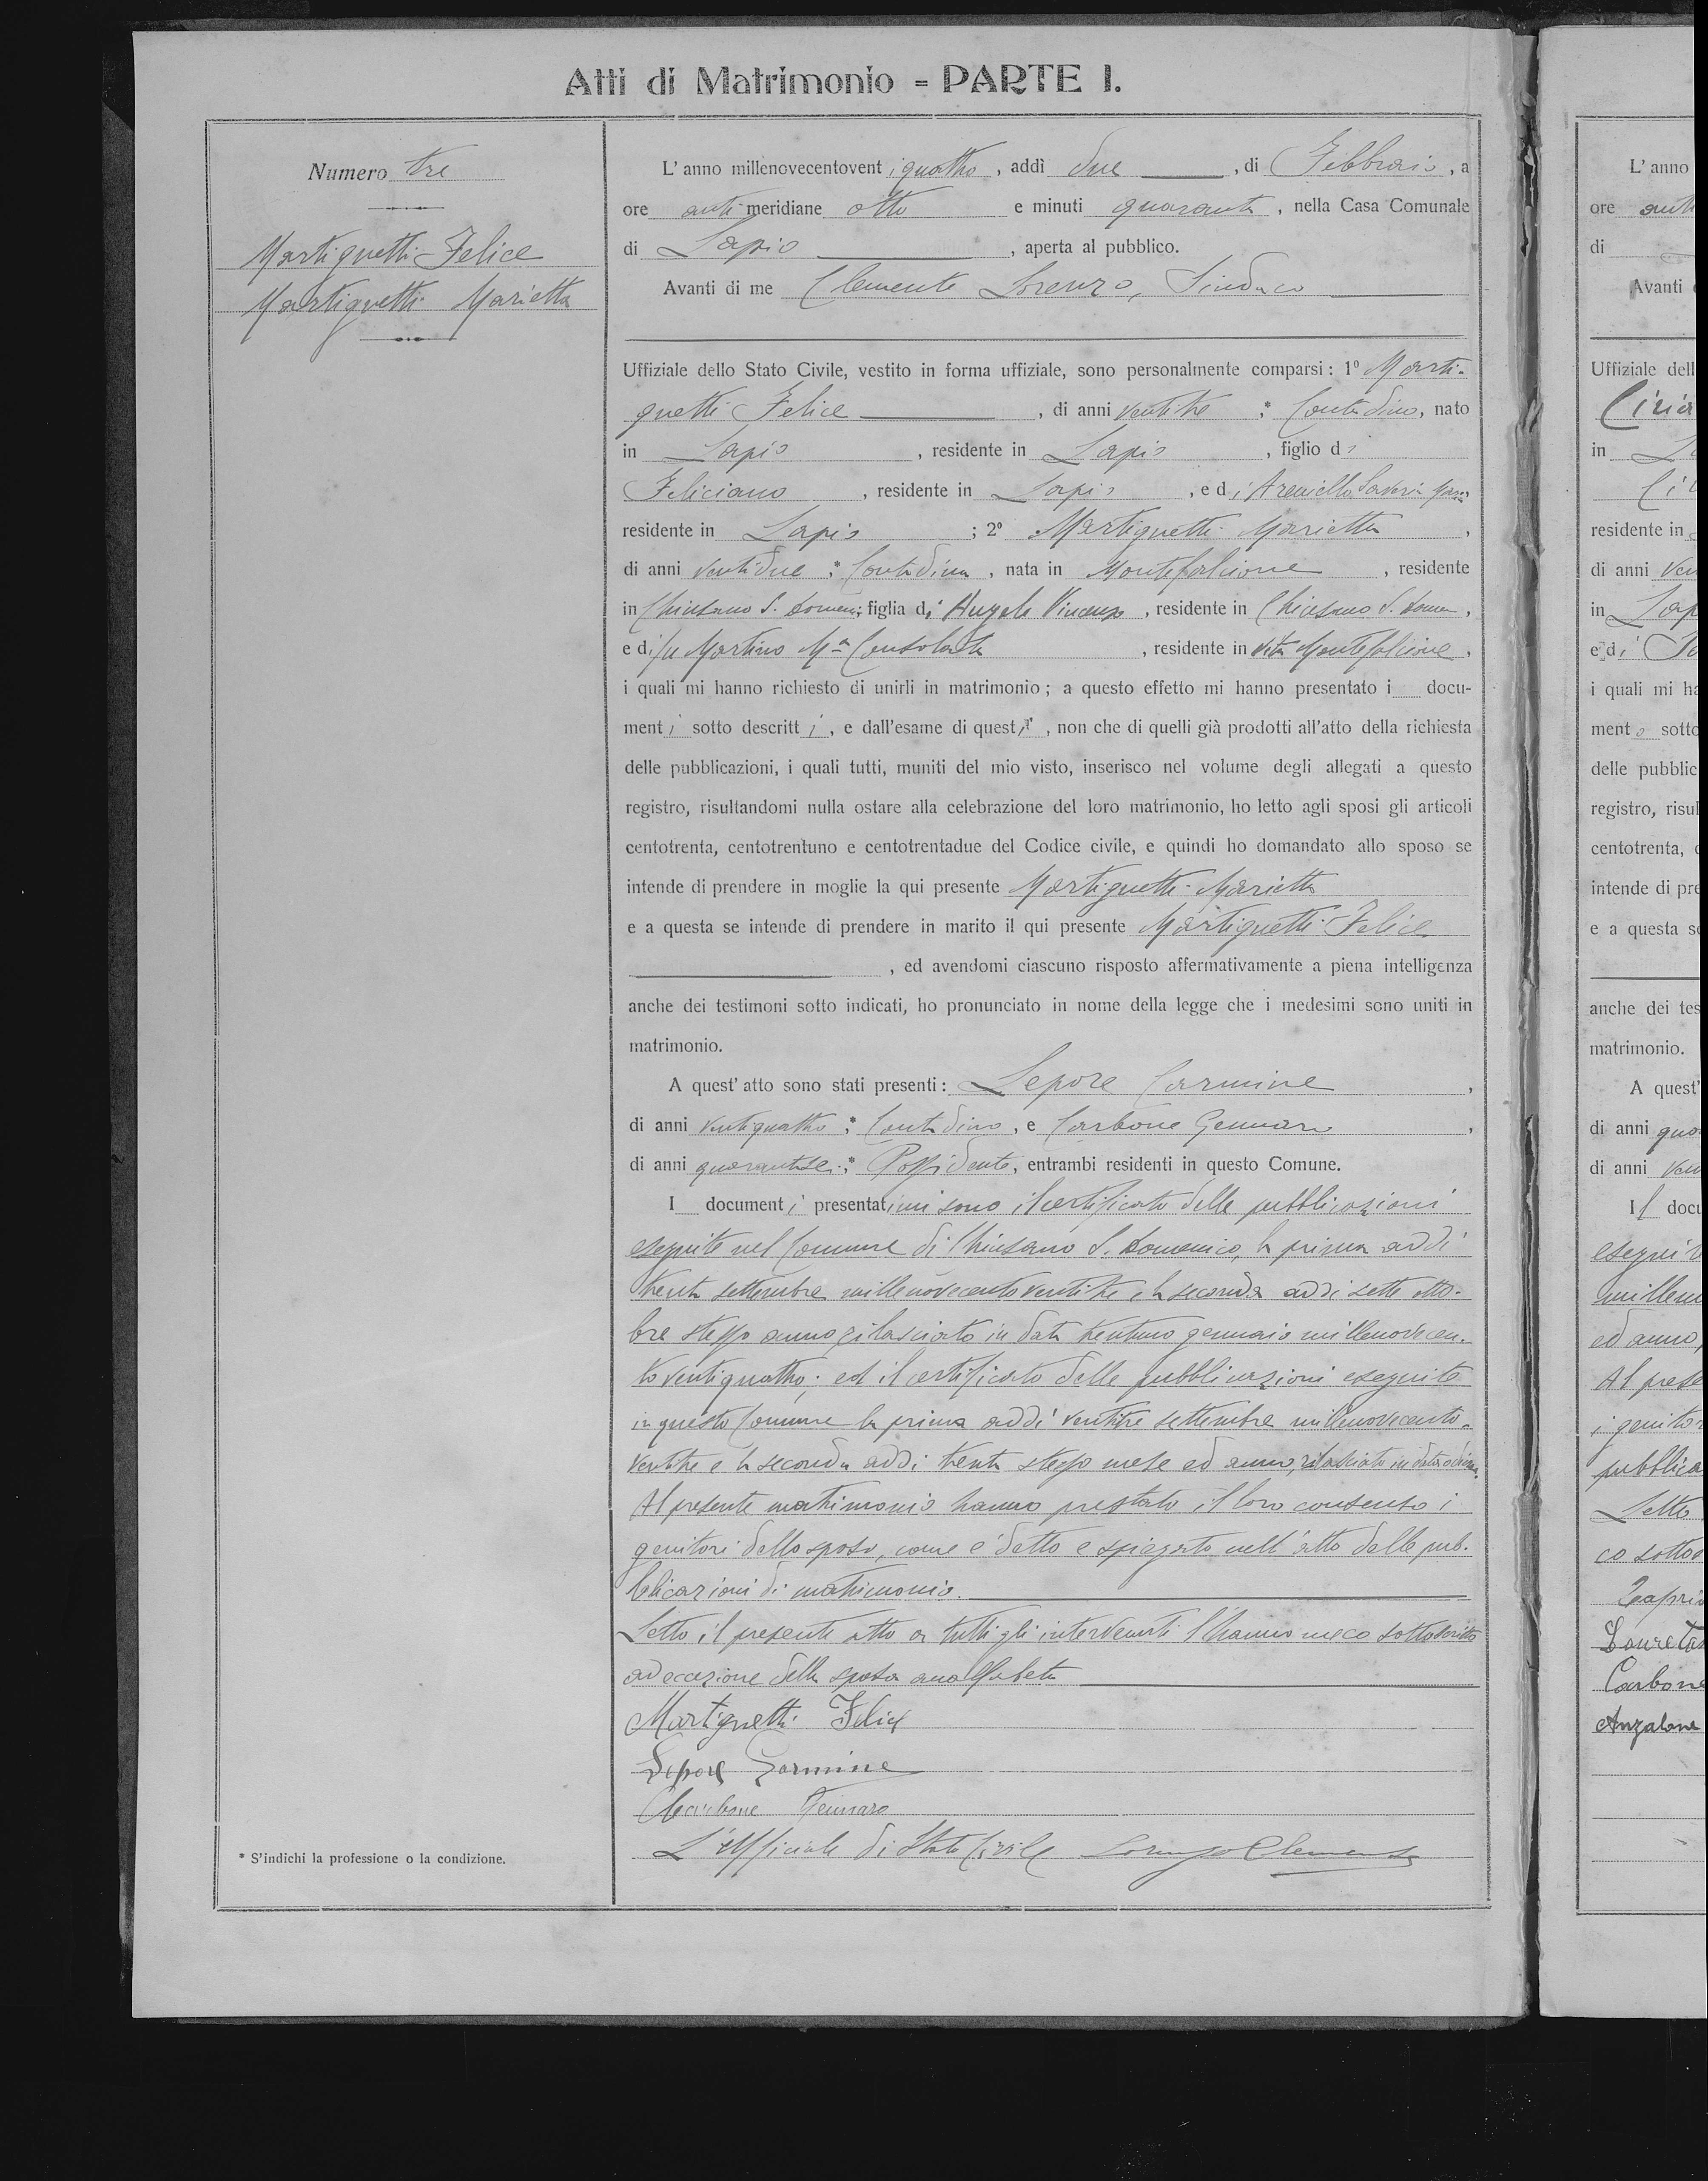 Atti di Matrimonio = PARTE I.
Numero tre
Martignetti Felice
Martignetti Marietta
* S'indichi la professione o la condizione.
L'anno millenovecentoventiquattro, addì due, di Febbraio, a
ore antimeridiane otto e minuti quaranta, nella Casa Comunale
di Lapio, aperta al pubblico.
Avanti di me Clemente Lorenzo, Sindaco
Uffiziale dello Stato Civile, vestito in forma uffiziale, sono personalmente comparsi: 1º Marti-
gnetti Felice, di anni ventitre * Contadino, nato
in Lapio, residente in Lapio, figlio di
Feliciano, residente in Lapio, e di
residente in Lapio; 2º Martignetti Marietta,
di anni ventidue * Contadina, nata in Montefalcione, residente
in Chiusano S. Domen. figlia di Angelo Vincenzo, residente in Chiusano S. Domen.,
e di fu Martino Mª Consolata, residente in vita Montefalcione,
i quali mi hanno richiesto di unirli in matrimonio; a questo effetto mi hanno presentato i docu-
menti sotto descritti, e dall'esame di questi, non che di quelli già prodotti all'atto della richiesta
delle pubblicazioni, i quali tutti, muniti del mio visto, inserisco nel volume degli allegati a questo
registro, risultandomi nulla ostare alla celebrazione del loro matrimonio, ho letto agli sposi gli articoli
centotrenta, centotrentuno e centotrentadue del Codice civile, e quindi ho domandato allo sposo se
intende di prendere in moglie la qui presente Martignetti Marietta
e a questa se intende di prendere in marito il qui presente Martignetti Felice
, ed avendomi ciascuno risposto affermativamente a piena intelligenza
anche dei testimoni sotto indicati, ho pronunciato in nome della legge che i medesimi sono uniti in
matrimonio.
A quest'atto sono stati presenti: Lepore Carmine,
di anni ventiquattro * Contadino, e Carbone Gennaro,
di anni quarantasei * Possidente, entrambi residenti in questo Comune.
I documenti presentatimi sono il certificato delle pubblicazioni
eseguite nel Comune di Chiusano S. Domenico, la prima addì
trenta settembre millenovecentoventitre e la seconda addì sette otto-
bre stesso anno, rilasciato in data trentuno gennaio millenovecen-
toventiquattro; ed il certificato delle pubblicazioni eseguite
in questo Comune la prima addì ventitre settembre millenovecento-
ventitre e la seconda addì trenta stesso mese ed anno, rilasciato in data odierna.
Al presente matrimonio hanno prestato il loro consenso i
genitori dello sposo, come è detto e spiegato nell'atto delle pub-
blicazioni di matrimonio.
Letto il presente atto a tutti gli intervenuti l'hanno meco sottoscritto
ad eccezione della sposa analfabeta
Martignetti Felice
Lepore Carmine
Carbone Gennaro
L'Ufficiale di Stato Civile Lorenzo Clemente
L'anno
ore anti
di
Avanti
Uffiziale dell
Ciria
in La
residente in
di anni ven
in Lap
e di
i quali mi ha
mento sotto
delle pubblic
registro, risul
centotrenta,
intende di pre
e a questa se
anche dei tes
matrimonio.
A quest'
di anni qua
di anni ven
Il docu
esegui
millen
ed anno,
Al prese
i genitor
pubblica
Letto
co sotto
Carbone
Anzalone